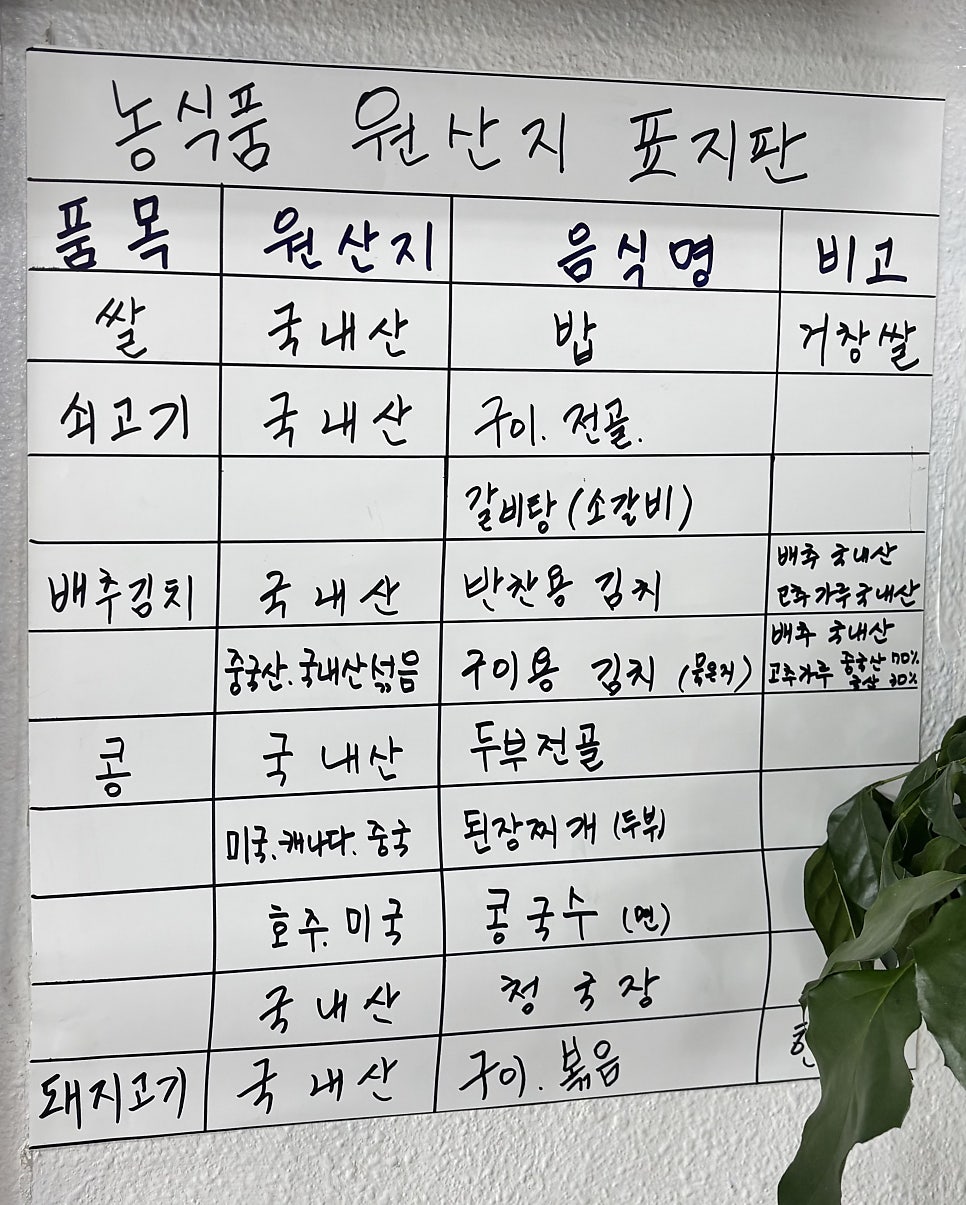 농식품 원산지 표지판
품목 원산지 음식명 비고
쌀 국내산 밥 거창쌀
쇠고기 국내산 구이. 전골.
갈비탕 (소갈비)
배추김치 국내산 반찬용 김치 배추 국내산
고추가루 국내산
중국산.국내산섞음 구이용 김치 (묵은지) 배추 국내산
고추가루 중국산 70%
국산 30%
콩 국내산 두부전골
미국.캐나다.중국 된장찌개 (두부)
호주.미국 콩국수 (면)
국내산 청국장
돼지고기 국내산 구이. 볶음